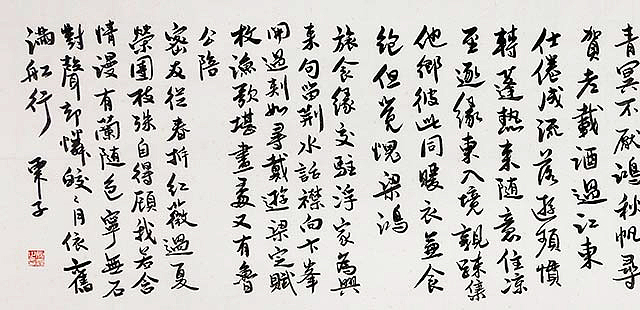 青冥不厭鴻秋帆尋
賀老載酒過江東
仕倦成流落遊頻慣
轉蓬熱来随意住凉
至逐緣東入境親踈集
他鄉彼此同暖衣兼食
飽但覺愧梁鴻
旅食緣交駐浮家為興
来句留荆水話襟向卞峯
開過剡如尋戴遊梁定賦
枚漁歌堪畫處又有魯
公陪
密友從春拆紅薇過夏
榮團枝殊自得顧我若含
情漫有蘭随色寧無石
對聲却憐皎々月依舊
滿船行